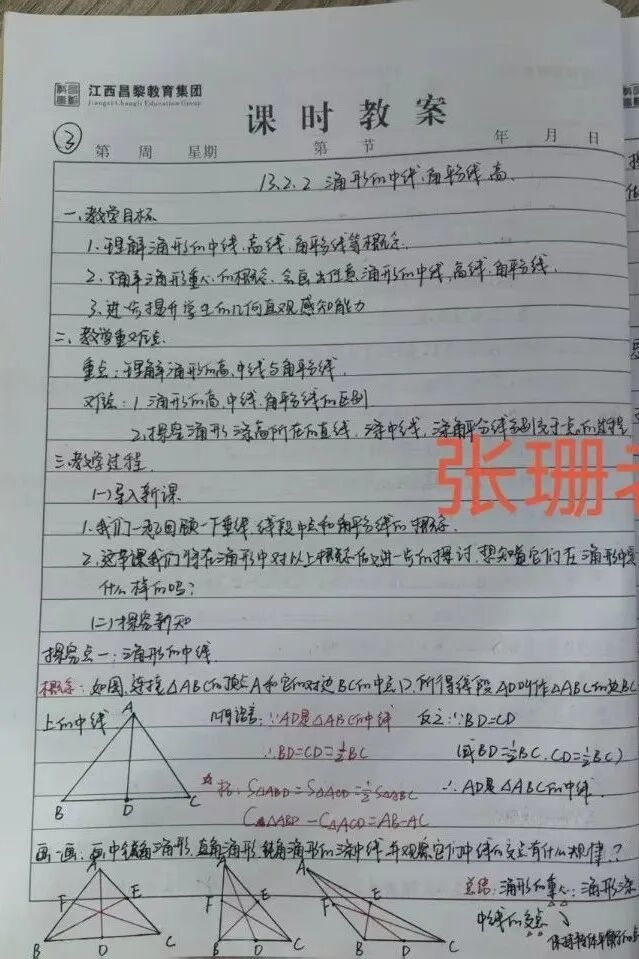 江西昌黎教育集团
Jiangxi Changli Education Group
课时教案
③
第 周 星期 第 节 年 月 日
13.2.2 三角形的中线、角平分线、高
一、教学目标
1. 理解三角形的中线、高线、角平分线等概念.
2. 了解三角形重心的概念,会画出任意三角形的中线,高线,角平分线.
3. 进一步提升学生的几何直观感知能力
二、教学重难点
重点:理解三角形的高、中线与角平分线.
难点:1. 三角形的高、中线、角平分线的区别
2. 探究三角形三条高所在的直线,三条中线,三条角平分线分别交于一点的过程
三、教学过程
张珊老
(一)导入新课
1. 我们一起回顾一下垂线、线段中点和角平分线的概念.
2. 这节课我们将在三角形中对以上概念做进一步的探讨,想知道它们在三角形中是
什么样的吗?
(二)探究新知
探究点一:三角形的中线
概念:如图,连接△ABC的顶点A和它的对边BC的中点D,所得线段AD叫作△ABC的边BC
上的中线
几何语言:∵AD是△ABC的中线 反之:∵BD=CD
∴BD=CD=½BC (或BD=½BC,CD=½BC)
☆ S△ABD=S△ACD=½S△ABC ∴AD是△ABC的中线.
C△ABD-C△ACD=AB-AC
A
B D C
画一画:画出锐角三角形,直角三角形,钝角三角形的三条中线,并观察它们中线的交点有什么规律?
总结:三角形的重心:三角形三条
中线的交点
A F E B D C
A F E B D C
A F E B D C